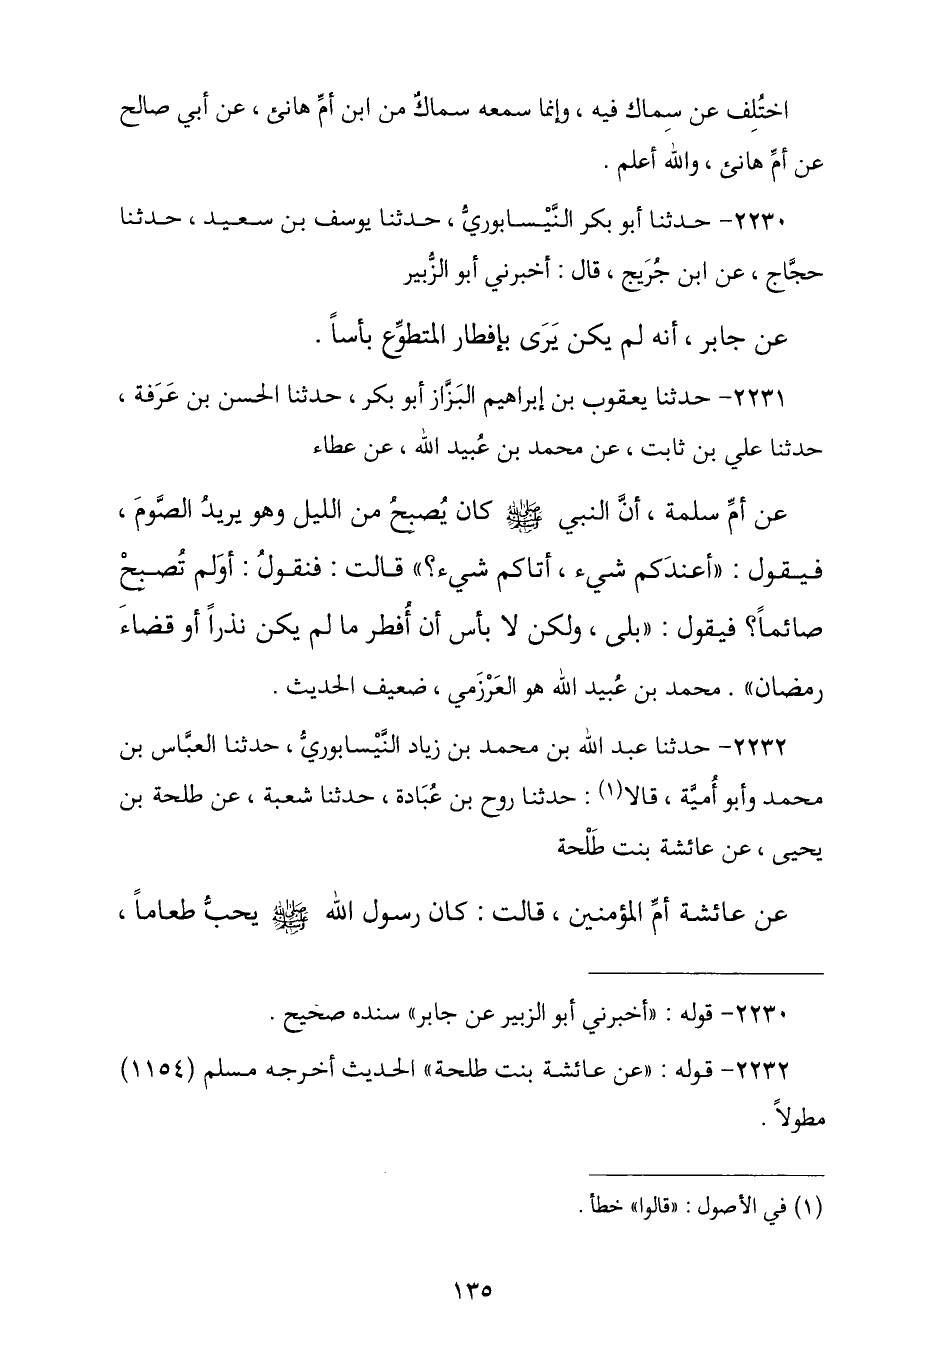 اختُلِف عن سِماك فيه ، وإنما سمعه سماكٌ من ابن أمِّ هانئ ، عن أبي صالح
عن أمِّ هانئ ، والله أعلم .
٢٢٣٠- حدثنا أبو بكر النَّيْسابوريُّ ، حدثنا يوسف بن سعيد ، حدثنا
حجَّاج ، عن ابن جُرَيج ، قال : أخبرني أبو الزُّبير
عن جابر ، أنه لم يكن يَرَى بإفطار المتطوِّع بأساً .
٢٢٣١- حدثنا يعقوب بن إبراهيم البَزَّاز أبو بكر ، حدثنا الحسن بن عَرَفة ،
حدثنا علي بن ثابت ، عن محمد بن عُبيد الله ، عن عطاء
عن أمِّ سلمة ، أنَّ النبي ﷺ كان يُصبحُ من الليل وهو يريدُ الصَّومَ ،
فيقول : «أعندَكم شيء ، أتاكم شيء؟» قالت : فنقولُ : أوَلم تُصبحْ
صائماً؟ فيقول : «بلى ، ولكن لا بأس أن أُفطر ما لم يكن نذراً أو قضاءَ
رمضان» . محمد بن عُبيد الله هو العَرْزَمي ، ضعيف الحديث .
٢٢٣٢- حدثنا عبد الله بن محمد بن زياد النَّيْسابوريُّ ، حدثنا العبَّاس بن
محمد وأبو أُميَّة ، قالا(١) : حدثنا روح بن عُبَادة ، حدثنا شعبة ، عن طلحة بن
يحيى ، عن عائشة بنت طَلْحة
عن عائشة أمِّ المؤمنين ، قالت : كان رسول الله ﷺ يحبُّ طعاماً ،
٢٢٣٠- قوله : «أخبرني أبو الزبير عن جابر» سنده صحيح .
٢٢٣٢- قوله : «عن عائشة بنت طلحة» الحديث أخرجه مسلم (١١٥٤)
مطولاً .
(١) في الأصول : «قالوا» خطأ .
١٣٥